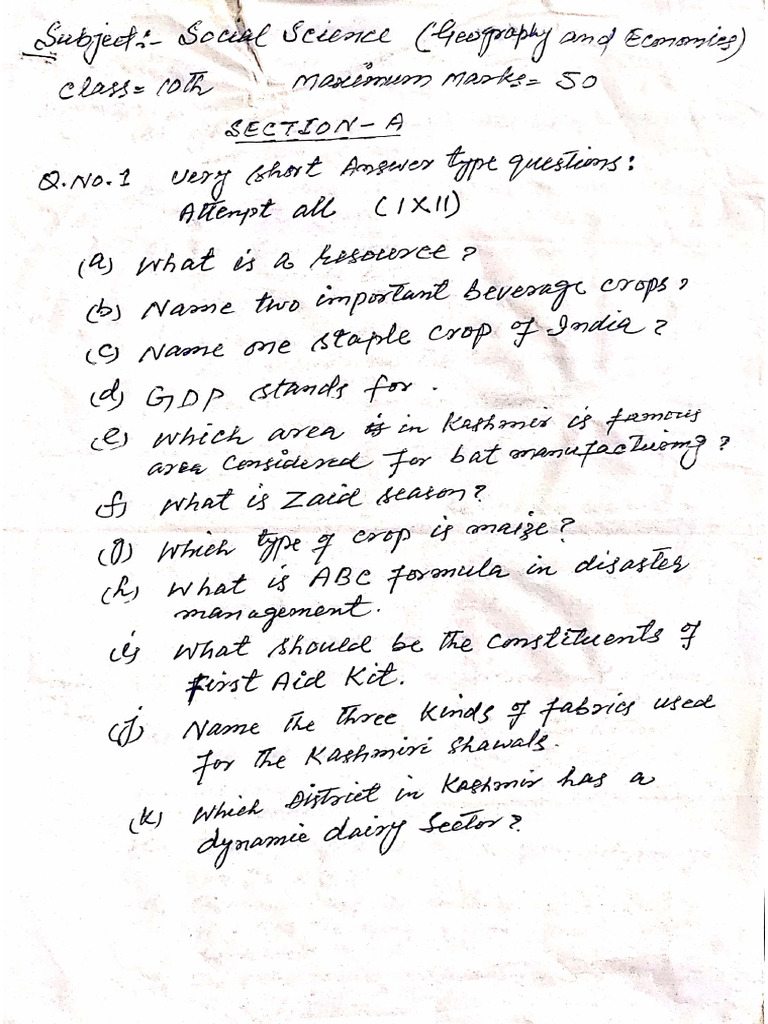 Subject:- Social Science (Geography and Economics)
Class= 10th Maximum Marks= 50
SECTION-A
Q.No.1 Very short Answer type questions:
Attempt all (1X11)
(a) What is a resource?
(b) Name two important beverage crops?
(c) Name one staple crop of India?
(d) GDP stands for.
(e) Which area in Kashmir is famous
area considered for bat manufactuiong?
(f) What is Zaid season?
(g) Which type of crop is maize?
(h) What is ABC formula in disaster
management.
(i) What should be the constituents of
First Aid Kit.
(j) Name the three kinds of fabrics used
for the Kashmiri shawals.
(k) Which District in Kashmir has a
dynamic dairy Sector?